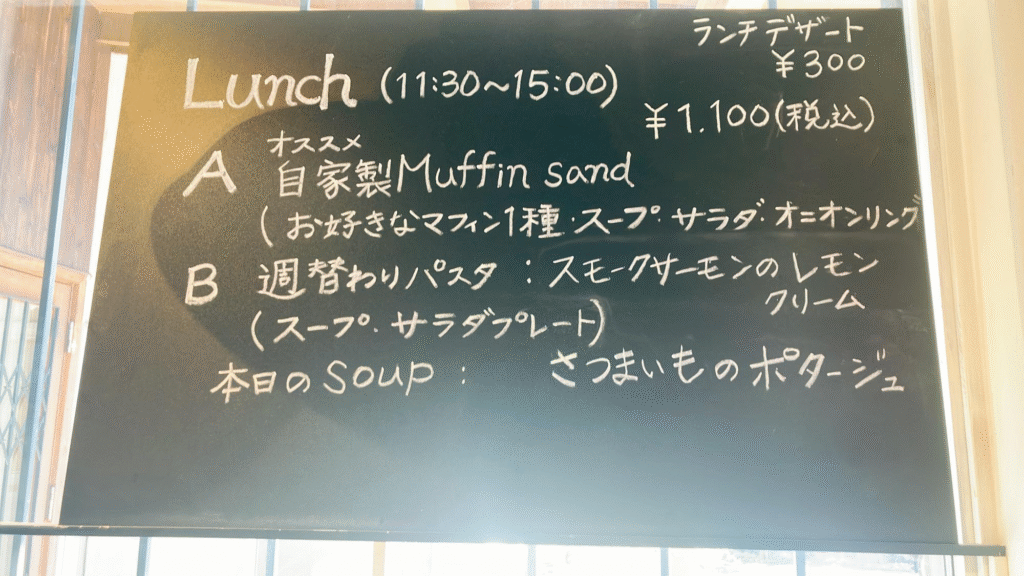 ランチデザート
¥300
Lunch (11:30〜15:00)
¥1.100(税込)
オススメ
A 自家製Muffin sand
(お好きなマフィン1種・スープ・サラダ・オニオンリング
B 週替わりパスタ : スモークサーモンのレモン
クリーム
(スープ・サラダプレート)
本日のsoup : さつまいものポタージュ